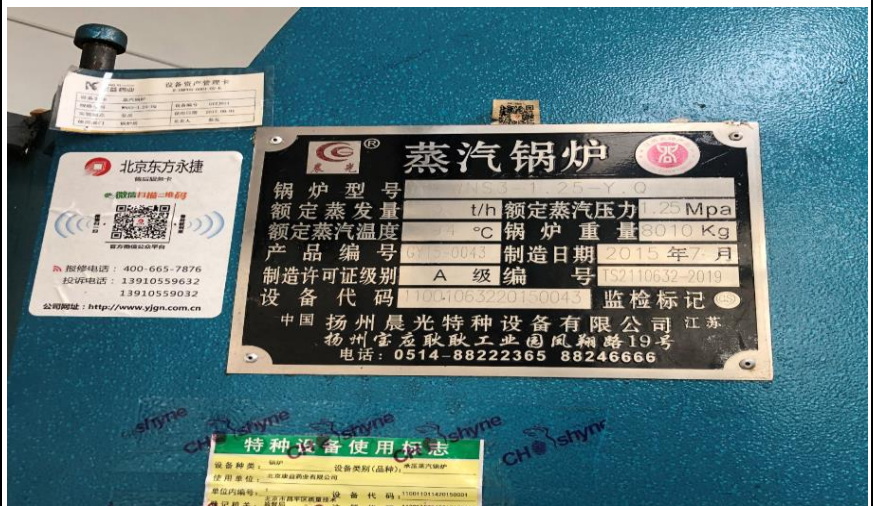 设备资产管理卡
蒸汽锅炉
北京东方永捷
售后服务卡
微信扫描二维码
官方微信公众平台
报修电话： 400-665-7876
投诉电话： 13910559632
13910559032
公司网址：http://www.yjgn.com.cn
晨光 ® 蒸汽锅炉
锅炉型号 WNS3-1.25-Y.Q
额定蒸发量 t/h 额定蒸汽压力 1.25 Mpa
额定蒸汽温度 194 ℃ 锅炉重量 8010 Kg
产品编号 GY15-0043 制造日期 2015 年 7 月
制造许可证级别 A 级 编号 TS2110632-2019
设备代码 11001063220150043 监检标记
中国 扬州晨光特种设备有限公司 江苏
扬州宝应耿耿工业园凤翔路19号
电话：0514-88222365 88246666
shyne
CH shyne
CH shyne
特种设备使用标志
设备种类： 锅炉 设备类别(品种)： 承压蒸汽锅炉
使用单位： 北京康益药业有限公司
单位内编号： 设备代码：
北京市昌平区质量技术
登记机关： 监督局